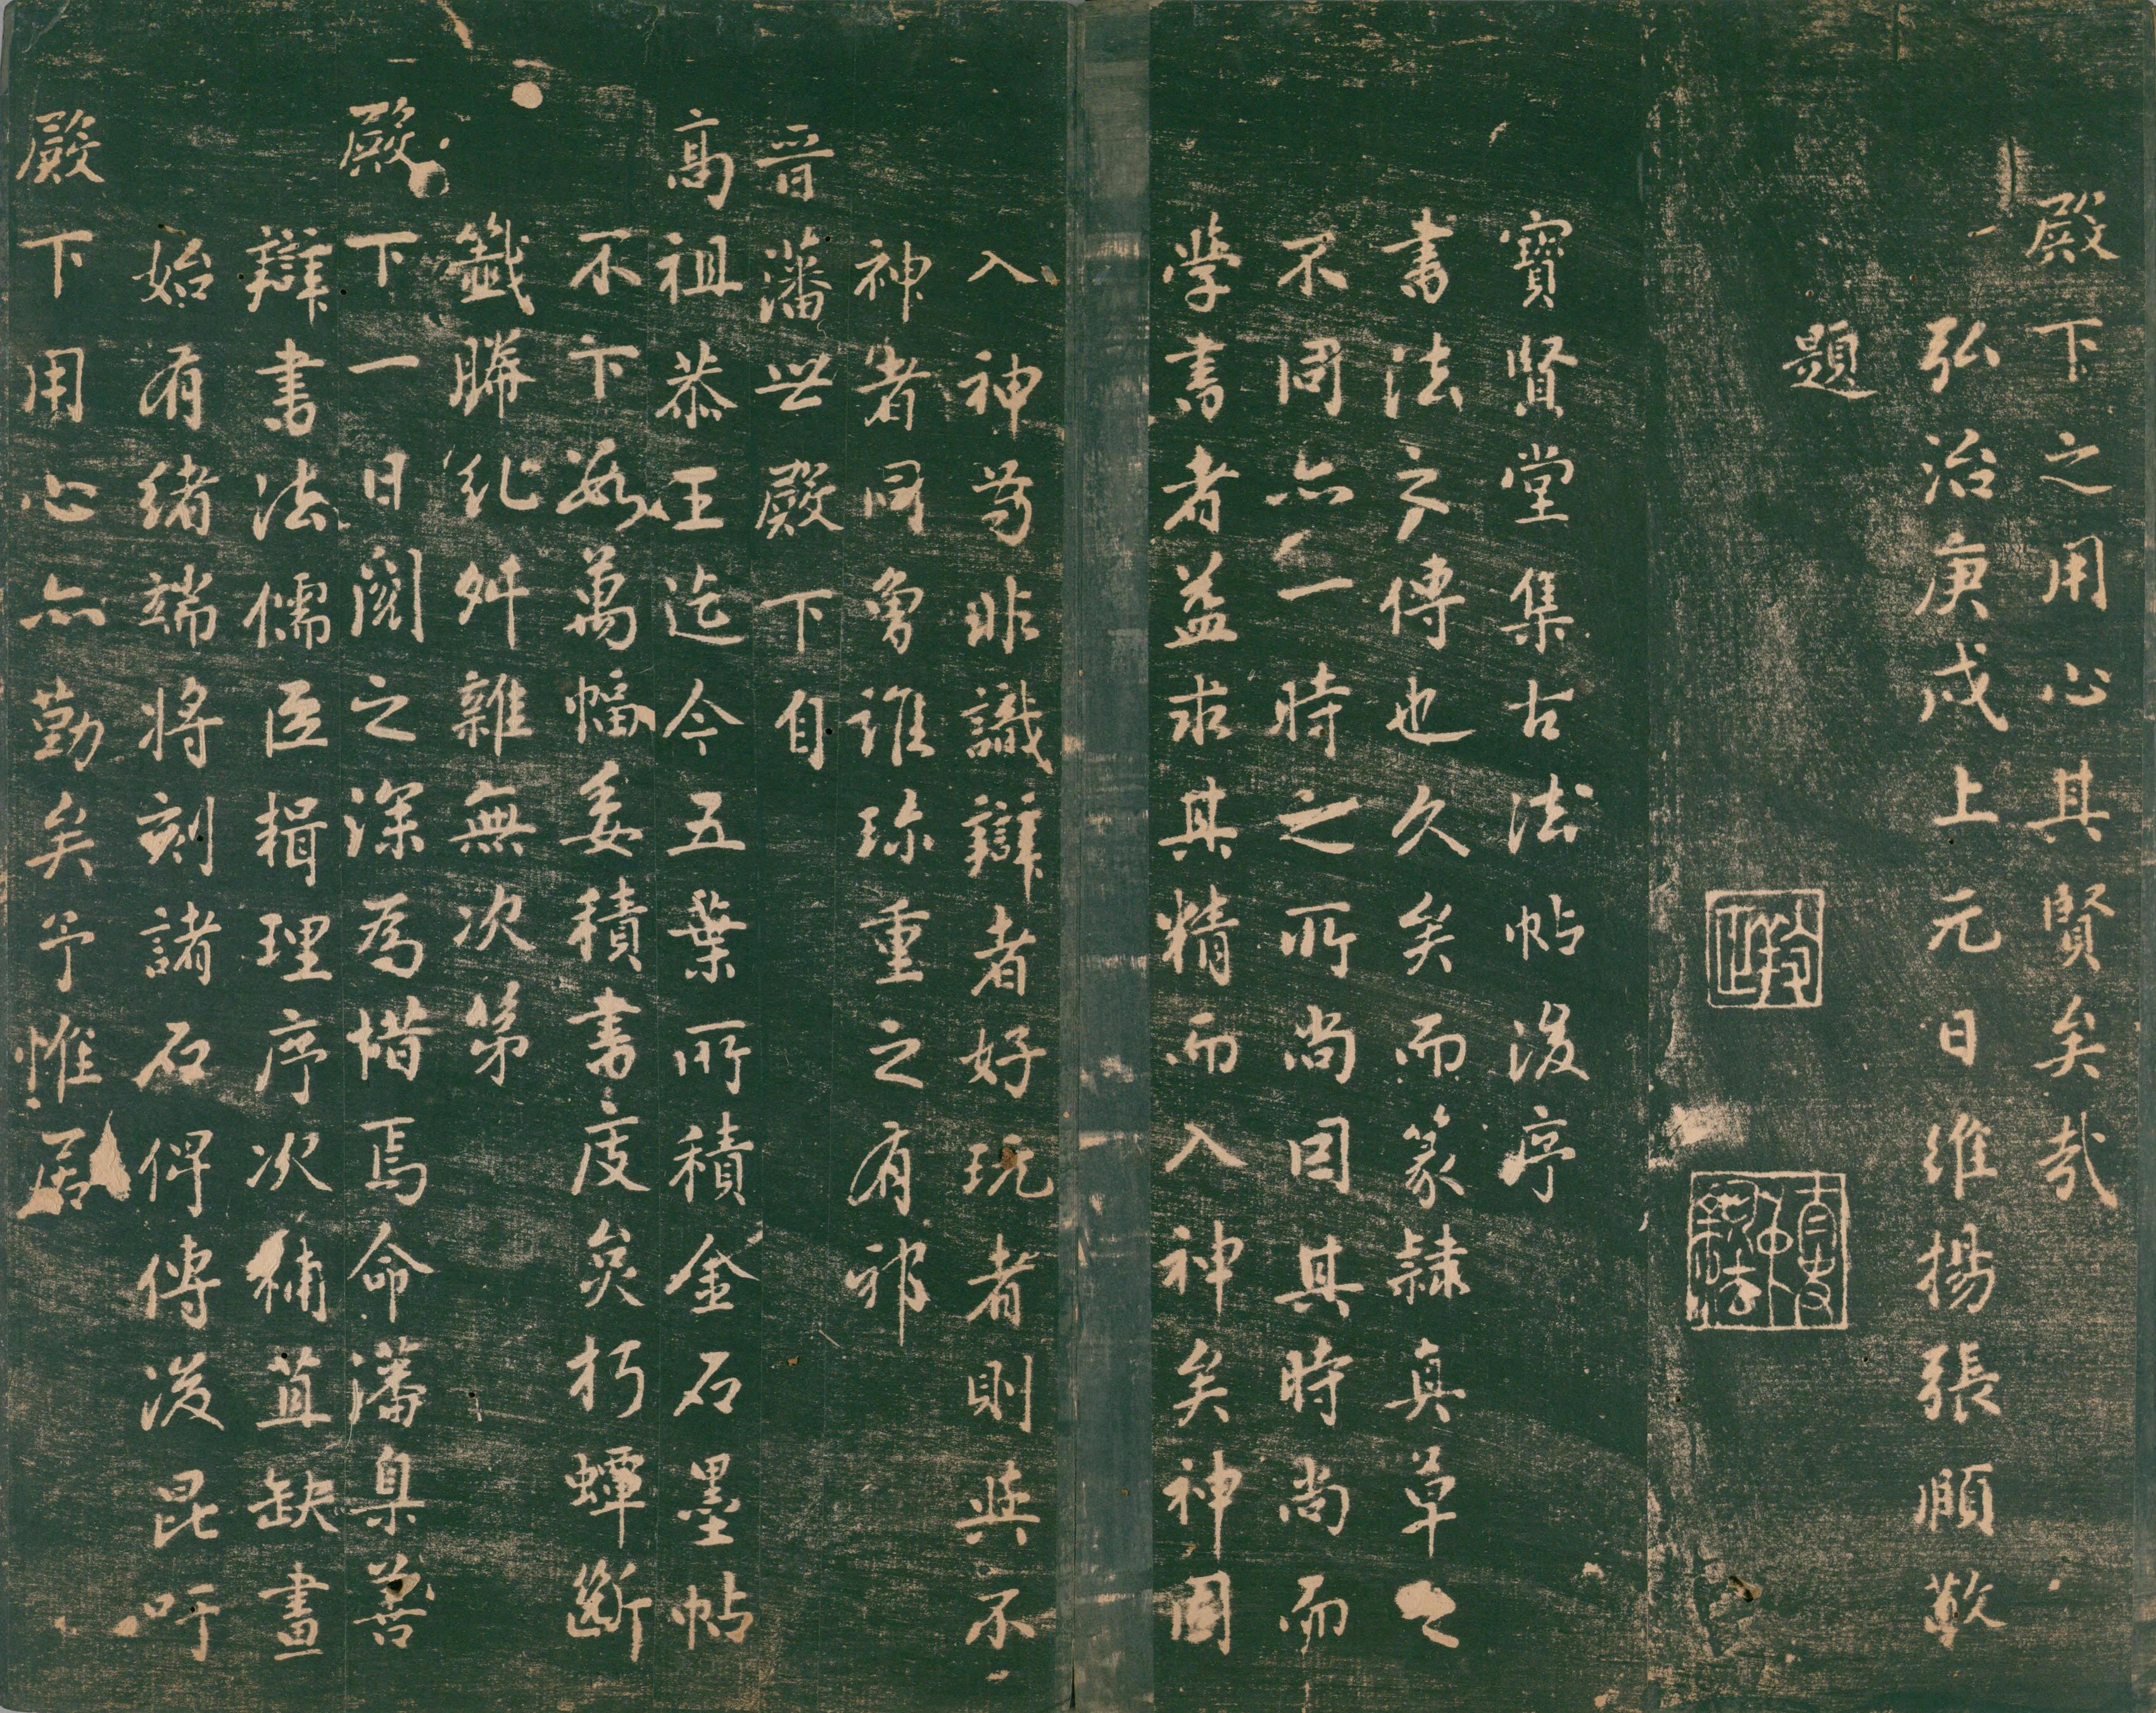 殿下之用心其賢矣哉
弘治庚戌上元日維揚張頤敬
題
寶賢堂集古法帖後序
書法之傳也久矣而篆隸真草之
不同亦一時之所尚因其時尚而
學書者益求其精而入神矣神固
入神苟非識辯者好玩者則與不
神者同曾誰珍重之有邪
晉藩世殿下自
高祖恭王迄今五葉所積金石墨帖
不下數萬幅委積書庋炱朽蟫斷
籤縢紕舛雜無次第
殿下一日閱之深為惜焉命藩臬善
辯書法儒臣輯理序次補苴缺畫
始有緒端將刻諸石俾傳後昆吁
殿下用心亦勤矣予惟居